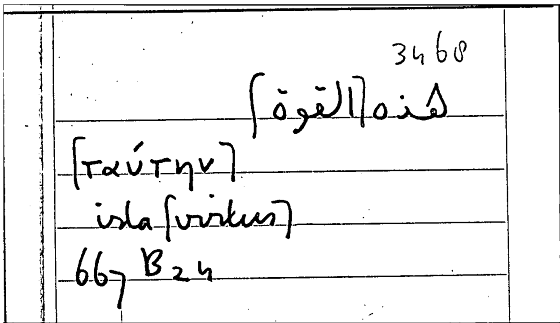 3468
هذه [القوة]
[ταύτην]
ista [virtus]
667 B 24